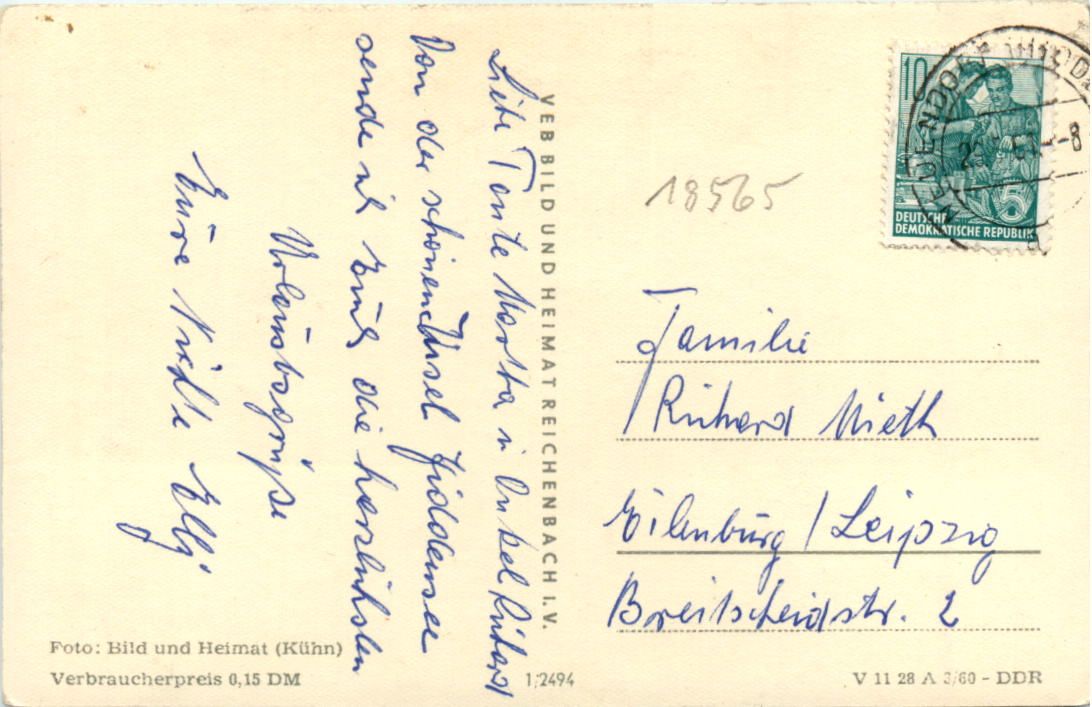 Liebe Tante Martha u Onkel Richard
Von der schönen Insel Hiddensee
sende ich Euch die herzlichsten
Urlaubsgrüße
Eure Nichte Elly
VEB BILD UND HEIMAT REICHENBACH I.V.
18565
10
5
DEUTSCHE
DEMOKRATISCHE REPUBLIK
NEUENDORF
-8
Familie
Richard Mieth
Eilenburg / Leipzig
Breitscheidstr. 2
Foto: Bild und Heimat (Kühn)
Verbraucherpreis 0,15 DM
1/2494
V 11 28 A 3/60 - DDR